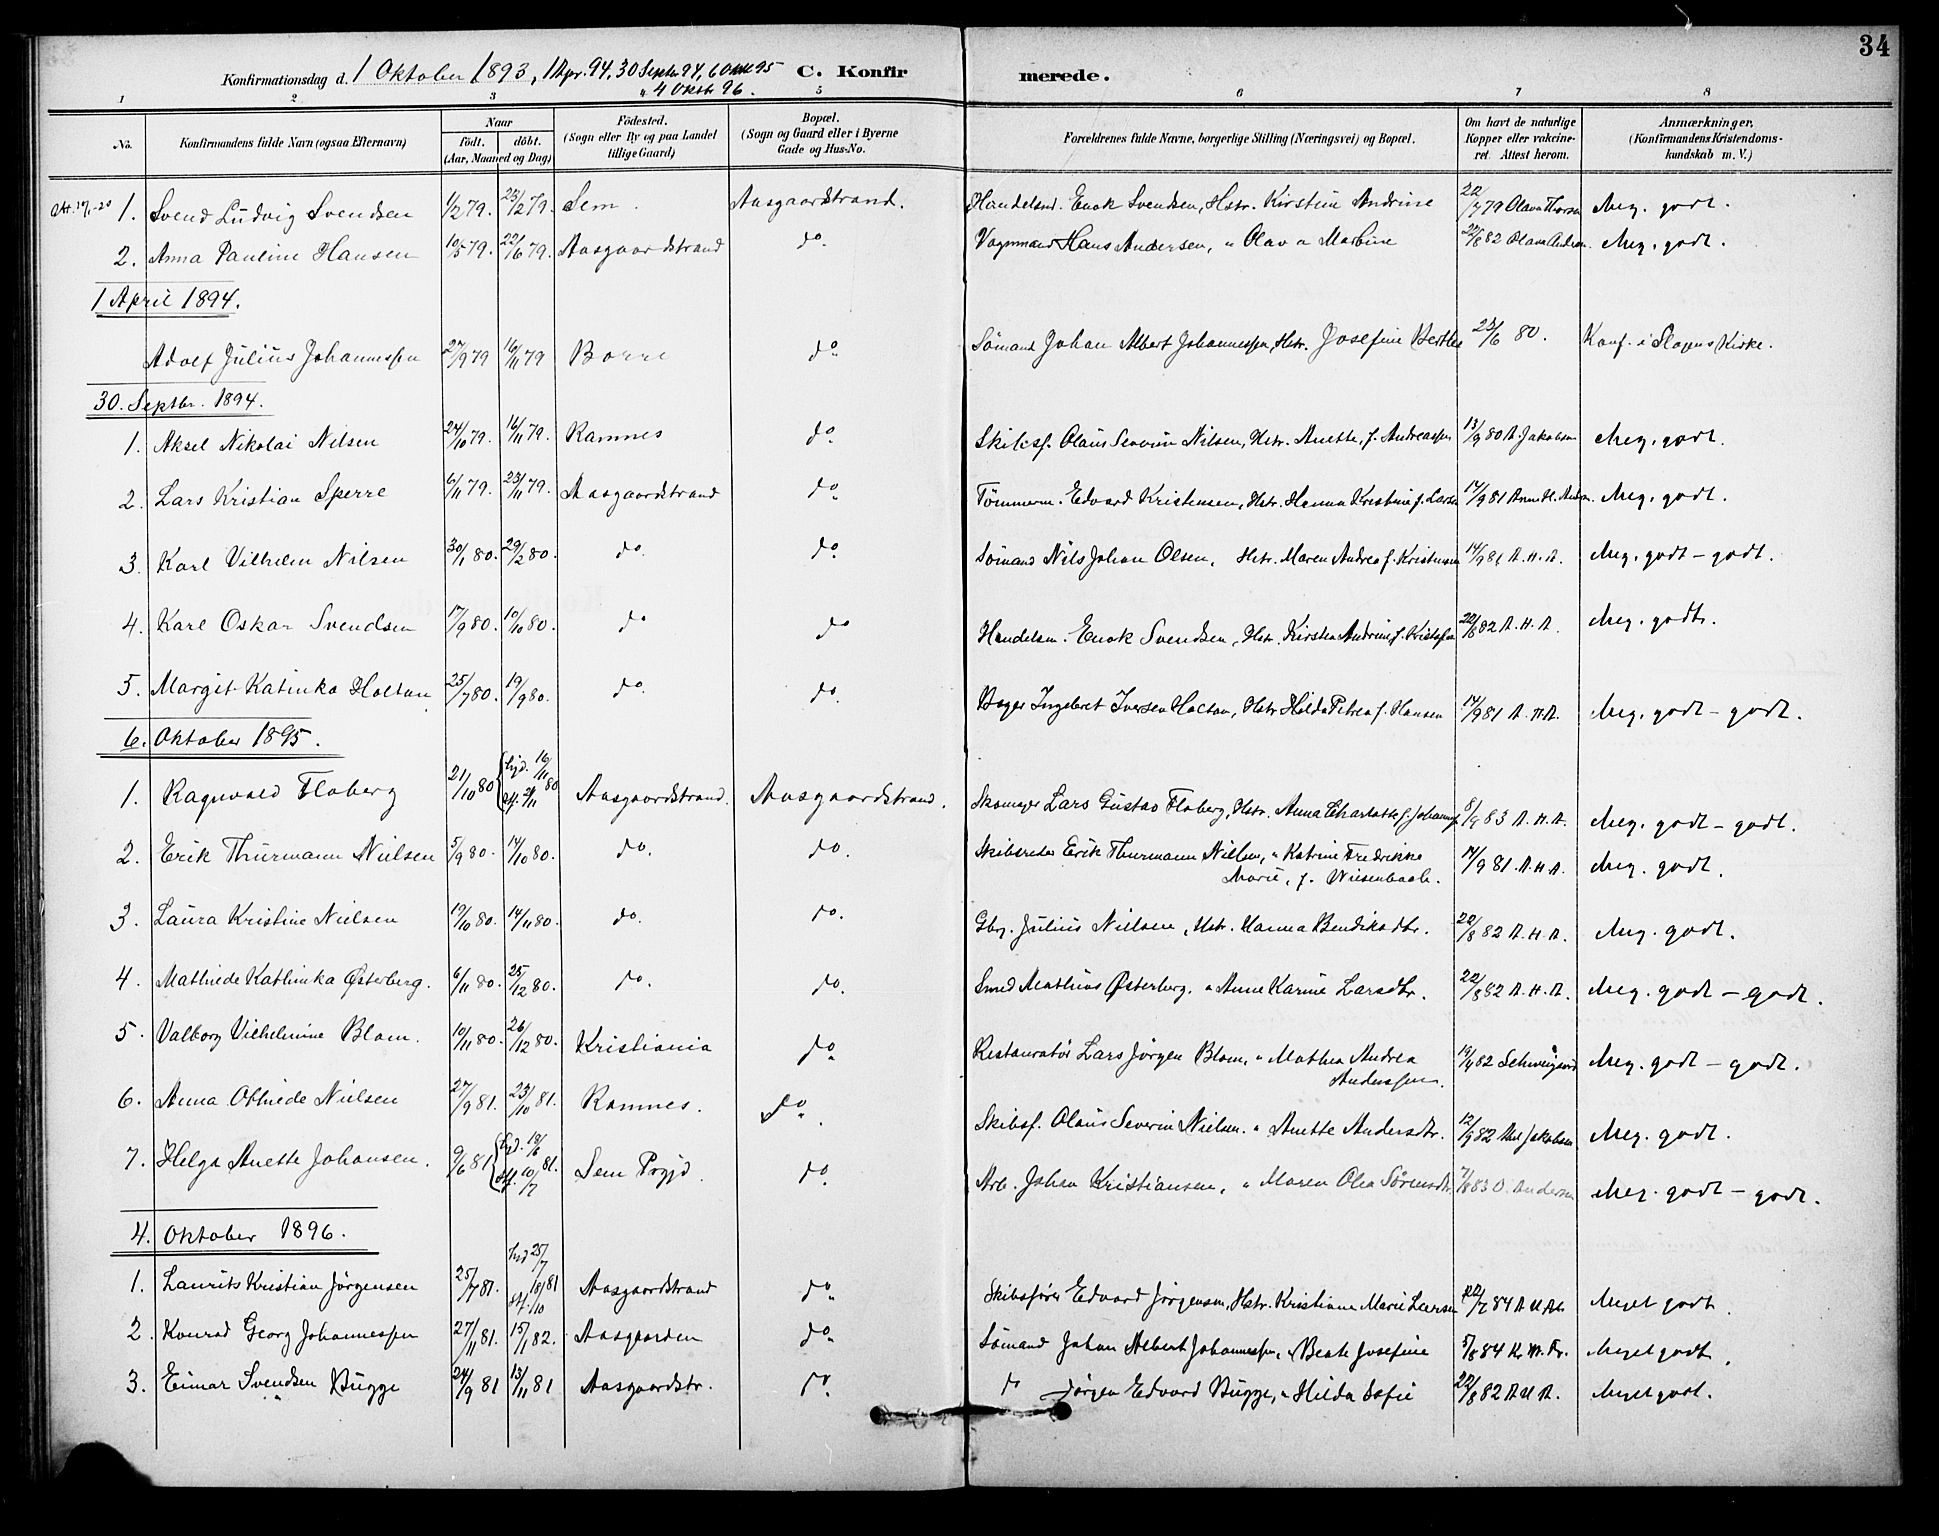 34
Konfirmationsdag d. 1 Oktober 1893, 1 Apr. 94, 30 Septbr 94, 6 Oktbr 95 C. Konfir merede.
" 4 Oktb. 96.
1 2 3 5 6 7 8
No. Konfirmandens fulde Navn (ogsaa Efternavn) Naar födt. döbt. (Aar, Maaned og Dag) Födested. (Sogn eller By og paa Landet tillige Gaard) Bopæl. (Sogn og Gaard eller i Byerne Gade og Hus-No. Forældrenes fulde Navne, borgerlige Stilling (Næringsvei) og Bopæl. Om havt de naturlige Kopper eller vakcineret Attest herom. Anmærkninger, (Konfirmandens Kristendomskundskab m. V.)
1. Svend Ludvig Svendsen 1/2 79. 23/2 79. Sem. Aasgaardstrand. Handelsmd. Enok Svendsen, Hstr. Kirstine Andrine 22/7 79 Olava Thorsen Meg. godt.
2. Anna Pauline Hansen 10/5 79. 22/6 79. Aasgaardstrand do. Vognmand Hans Andersen, " Olava Marthine 22/8 82 Olava Andsen. Meg. godt.
1 April 1894.
Adolf Julius Johannessen 27/9 79 16/11 79 Borre do Sömand Johan Albert Johannessen, Hstr. Josefine Berthe 23/6 80. Konf. i Slagens Kirke.
30. Septbr. 1894.
1. Aksel Nikolai Nilsen 24/10 79. 16/11 79. Ramnes do Skibsf. Olaus Severin Nilsen, Hstr. Anette, f. Andreassen 13/9 80 A. Jakobsen Meg. godt.
2. Lars Kristian Sperre 6/11 79. 23/11 79. Aasgaardstrand do Tömmerm. Edvard Kristensen, Hstr. Hanna Kristine f. Larsen 14/9 81 Anne H. Andsn. Meg. godt.
3. Karl Vilhelm Nilsen 30/1 80. 29/2 80. do. do. Sömand Nils Johan Olsen, Hstr. Maren Andrea f. Kristensen 14/9 81 A. H. A. Meg. godt - godt.
4. Karl Oskar Svendsen 17/9 80. 10/10 80. do do Handelsm. Enok Svendsen, Hstr. Kirstin Andrine, f. Kristofsen 22/8 82 A. H. A. Meg. godt.
5. Margit Katinka Holtan 25/7 80. 19/9 80. do. do. Bager Ingebret Iversen Holtan, Hstr. Hilda Petrea f. Hansen 14/9 81 A. H. A. Meg. godt - godt.
6. Oktober 1895.
1. Ragnvald Floberg 21/10 80 { hjd. 16/11 80 stf. 21/11 Aasgaardstrand. Aasgaardstrand. Skomager Lars Gustav Floberg, Hstr. Anna Charlotte f. Johannsen 5/9 83 A. H. A. Meg. godt - godt.
2. Erik Thurmann Nielsen 5/9 80. 14/10 80. do. do. Skibsreder Erik Thurmann Nielsen, " Katrine Fredrikke
Marie, f. Wiesenbach. 14/9 81. A. H. A. Meg. godt.
3. Laura Kristine Nielsen 19/10 80. 14/11 80. do. do. Gbr. Julius Nielsen, Hstr. Hanna Bendiksdtr. 22/8 82 A. H. A. Meg. godt.
4. Mathilde Kathinka Österberg. 6/11 80. 25/12 80. do. do. Smed Mathias Österberg. " Anne Karine Larsdtr. 22/8 82 A. H. A. Meg. godt - godt.
5. Valborg Vilhelmine Blom. 10/11 80. 26/12 80. Kristiania do Restauratör Lars Jörgen Blom, " Mathea Andrea
Anderssen. 19/4 82 Schweigaard Meg. godt - godt.
6. Anna Othilde Nielsen 27/9 81. 23/10 81. Ramnes. do. Skibsf. Olaus Severin Nielsen. " Anette Andersdtr. 12/9 82 And Jakobsen Meg. godt.
7. Helga Anette Johansen. 9/6 81 { hjd. 18/6 81. stf. 10/7 Sem Prgjd. do. Arb. Johan Kristiansen, " Maren Olea Sörensdtr. 7/8 83 O. Andersen Meg. godt - godt.
4. Oktober 1896.
1. Laurits Kristian Jörgensen 25/7 81. hjd 25/7 stf. 18/10 81 Aasgaardstrand do. Skibsförer Edvard Jörgensen, Hstr. Kristiane Marie Larsen 22/7 84 Meget godt.
2. Konrad Georg Johannessen 27/11 81. 15/1 82. Aasgaarden do. Sömand Johan Albert Johannessen, " Beate Josefine 5/8 84 Kr. M. Fr. Meget godt.
3. Eimar Svendsen Bugge 24/9 81 13/11 81 Aasgaardstr. do. do Jörgen Edvard Bugge, " Hilda Sofie 22/8 82 A H A. Meget godt.